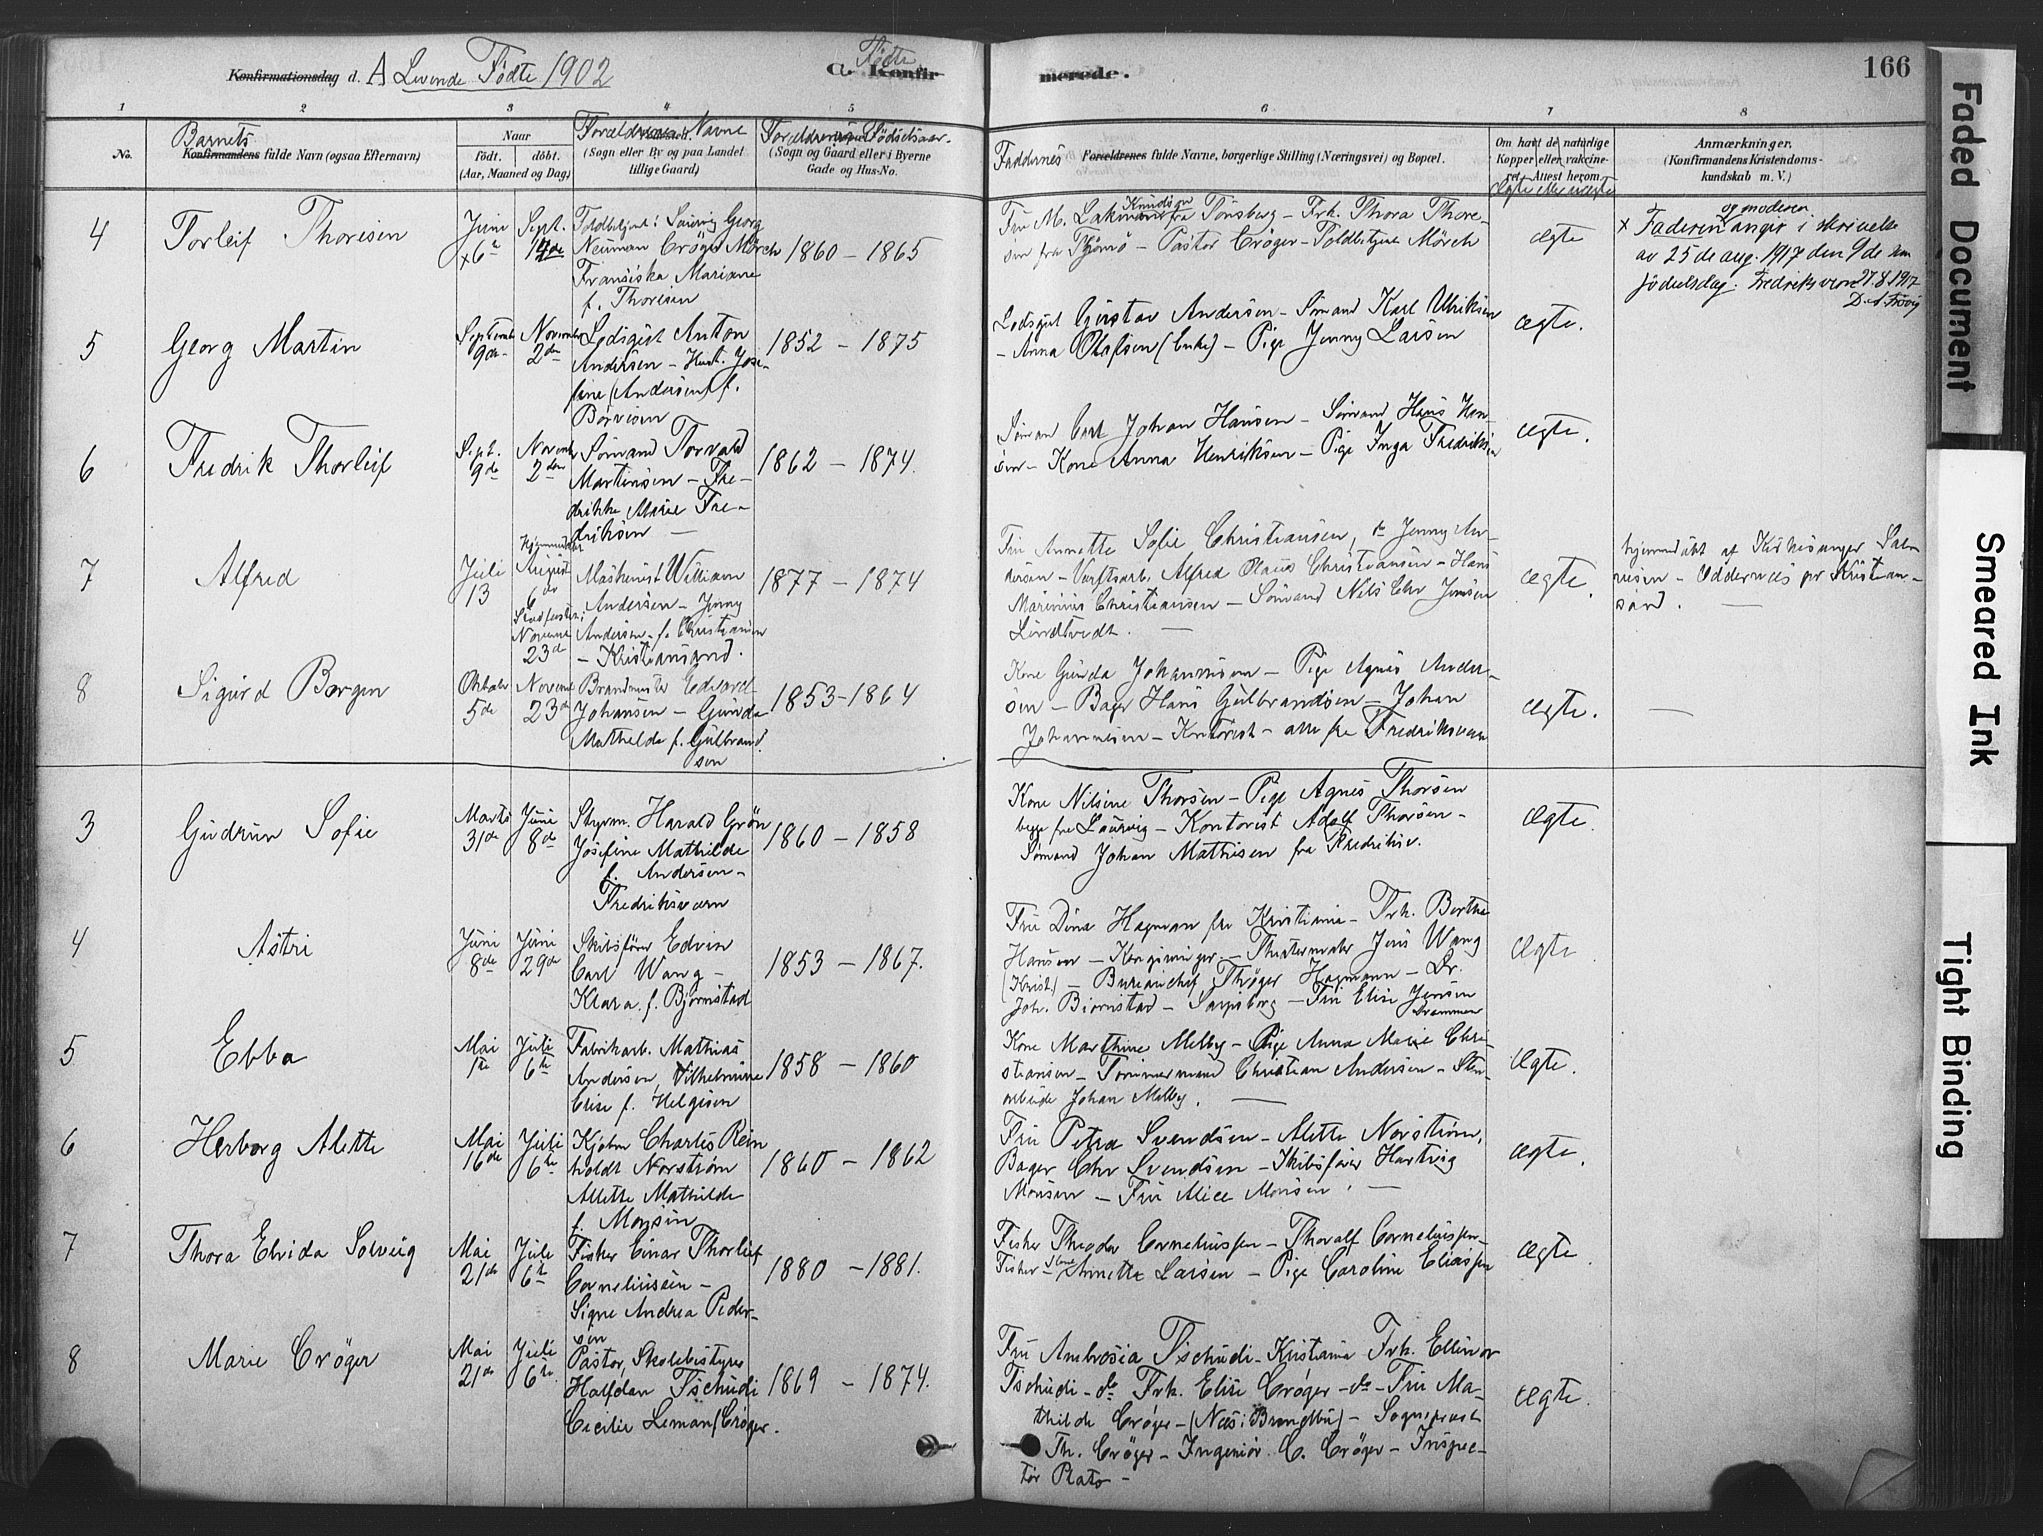 Konfirmationsdag d. A Levende Födte 1902
Födte
C. Konfir-
merede.
166
1 2 3 4 5 6 7 8
No.
Barnets
Konfirmandens fulde Navn (ogsaa Efternavn)
Naar
født. døbt.
(Aar, Maaned og Dag)
Forældrenes Navne
(Sogn eller By og paa Landet
tillige Gaard)
Forældrenes Fødselsaar.
(Sogn og Gaard eller i Byerne
Gade og Hus-No.
Faddernes Forældrenes fulde Navne, borgerlige Stilling (Næringsvei) og Bopæl.
Om havt de naturlige
Kopper eller vaccine-
ret. Attest herom.
Ægte eller uægte
Anmærkninger.
(Konfirmandens Kristendoms-
kundskab m. V.)
4 Torleif Thoresen
Juni
x 6te
Sept.
14de
Toldbetjent Georg
Neuman Cröger Mörch
Fransiska Mariane
f. Thorisen
1860 – 1865
Knudsen
Fru M. fra Tönsberg – Frk. Thora Thore-
sen fra Tjömö – Pastor Cröger – Toldbetjent Mörch
Ægte
og moderen
x Faderen angir i skrivelse
av 25de aug. 1917 den 9de som
födselsdag. Fredriksvern 27.8.1917
5 Georg Martin
September
9de
November
2den
Lodsgut Anton
Andersen – Hust. Jose-
fine (Andersen) f.
1852 – 1875
Lodsgut Gustav Andersen – Sömand Karl Ulriksen
– Anna Olafsen (Enke) – Pige Jenny Larsen
Ægte.
6 Fredrik Thorleif
Sept.
9de
Novemb
2den
Sömand Torvald
Martinsen – Fre-
drikke Marie Fre-
driksen —
1862 – 1874.
Sömand Carl Johan Hansen – Sömand Hans Hen-
sen – Kone Anna Henriksen – Pige Inga Fredriksen
Ægte.
7 Alfred
Juli
13
Hjemmedöbt
August
6te
Stadfæstet
Novemb
23de
Maskinist William
Andersen – Jenny
Andersen f. Christiansen
– Kristiansand.
1877 – 1874
Fru Annette Sofie Christiansen, do Jenny An-
dersen – Verftsarb. Alfred Olaus Christiansen – Hans
Marinius Christiansen – Sömand Nils Chr Jensen
Lindtvedt. —
Ægte.
hjemmedöbt af Kirkesanger Sal-
vesen – Oddernes pr Kristian-
sand. —
8 Sigurd Borgen
Oktober
5de
Novemb
23de
Brandmester Edvard
Johansen – Gunda
Mathilde f. Gulbrand-
sen
1853 – 1864
Kone Gunda Johannesen – Pige Agnes Ander-
sen – Bager Hans Gulbrandsen – Johan
Johannesen – Kontorist – alle fra Fredriksværn
Ægte. —
3 Gudrun Sofie
Marts
31de
Juni
8de
Styrm. Harald Grön
Josefine Mathilde
f. Andersen –
Fredriksværn
1860 – 1858
Kone Nilsine Thorsen – Pige Agnes Thorsen
begge fra Laurvig – Kontorist Adolf Thorsen –
Sömand Johan Mathisen fra Fredriksv.
Ægte.
4 Astri
Juni
8de
Juni
29de
Skibsförer Edvin
Carl Wang –
Klara f. Bjørnstad
1853 – 1867.
Fru Dina Hagman fra Kristiania – Frk. Berthe
Hansen – – Theatermaler Jens Wang
(Krist.) – Bureauchef Thröger Hagmann – Dr.
Joh. Biornstad – Sarpsborg – Fru Elise Jensen
Drammen
Ægte.
5 Ebba
Mai
1ste
Juli
6te
Fabrikarb. Mathias
Andersen, Vilhelmine
Elise f. Helgesen
1858 – 1860
Kone Marthine Melby – Pige Anna Marie Chri-
stiansen – Tömmermand Christian Andersen – Sten-
arbeide Johan Melby. —
Ægte.
6 Herborg Alette
Mai
16de
Juli
6te
Kjøbm Charles Rein
holdt Norström
Allette Mathilde
f. Monsen
1860 – 1862
Fru Petra Svendsen – Alette Norström,
Bager Chr Svendsen – Skibsförer Hartvig
Monsen – Fru Alice Monsen. —
Ægte.
7 Thora Elvida Solveig
Mai
21de
Juli
6te
Fisker Einar Thorleif
Corneliussen –
Signe Andrea Peder-
sen
1880 – 1881.
Fisker Theodor Corneliussen – Thoralf Corneliussen –
Fisker – Kone Annette Larsen – Pige Caroline Eliassen
Ægte.
8 Marie Cröger
Mai
21de
Juli
6te
Pastor, Skolebestyrer
Halfdan Tschudi
Cecilie Leman (Cröger.
1869 – 1874.
Fru Ambrosia Tschudi – Kristiania Frk. Ellinor
Tschudi – do Frk. Elise Cröger – do – Fru Ma-
thilde Cröger – (Næs: Brandbu) – Sogneprest
Th. Cröger – Ingeniör C. Cröger – Inspec-
tör Plato –
Ægte.
Faded Document
Smeared Ink
Tight Binding